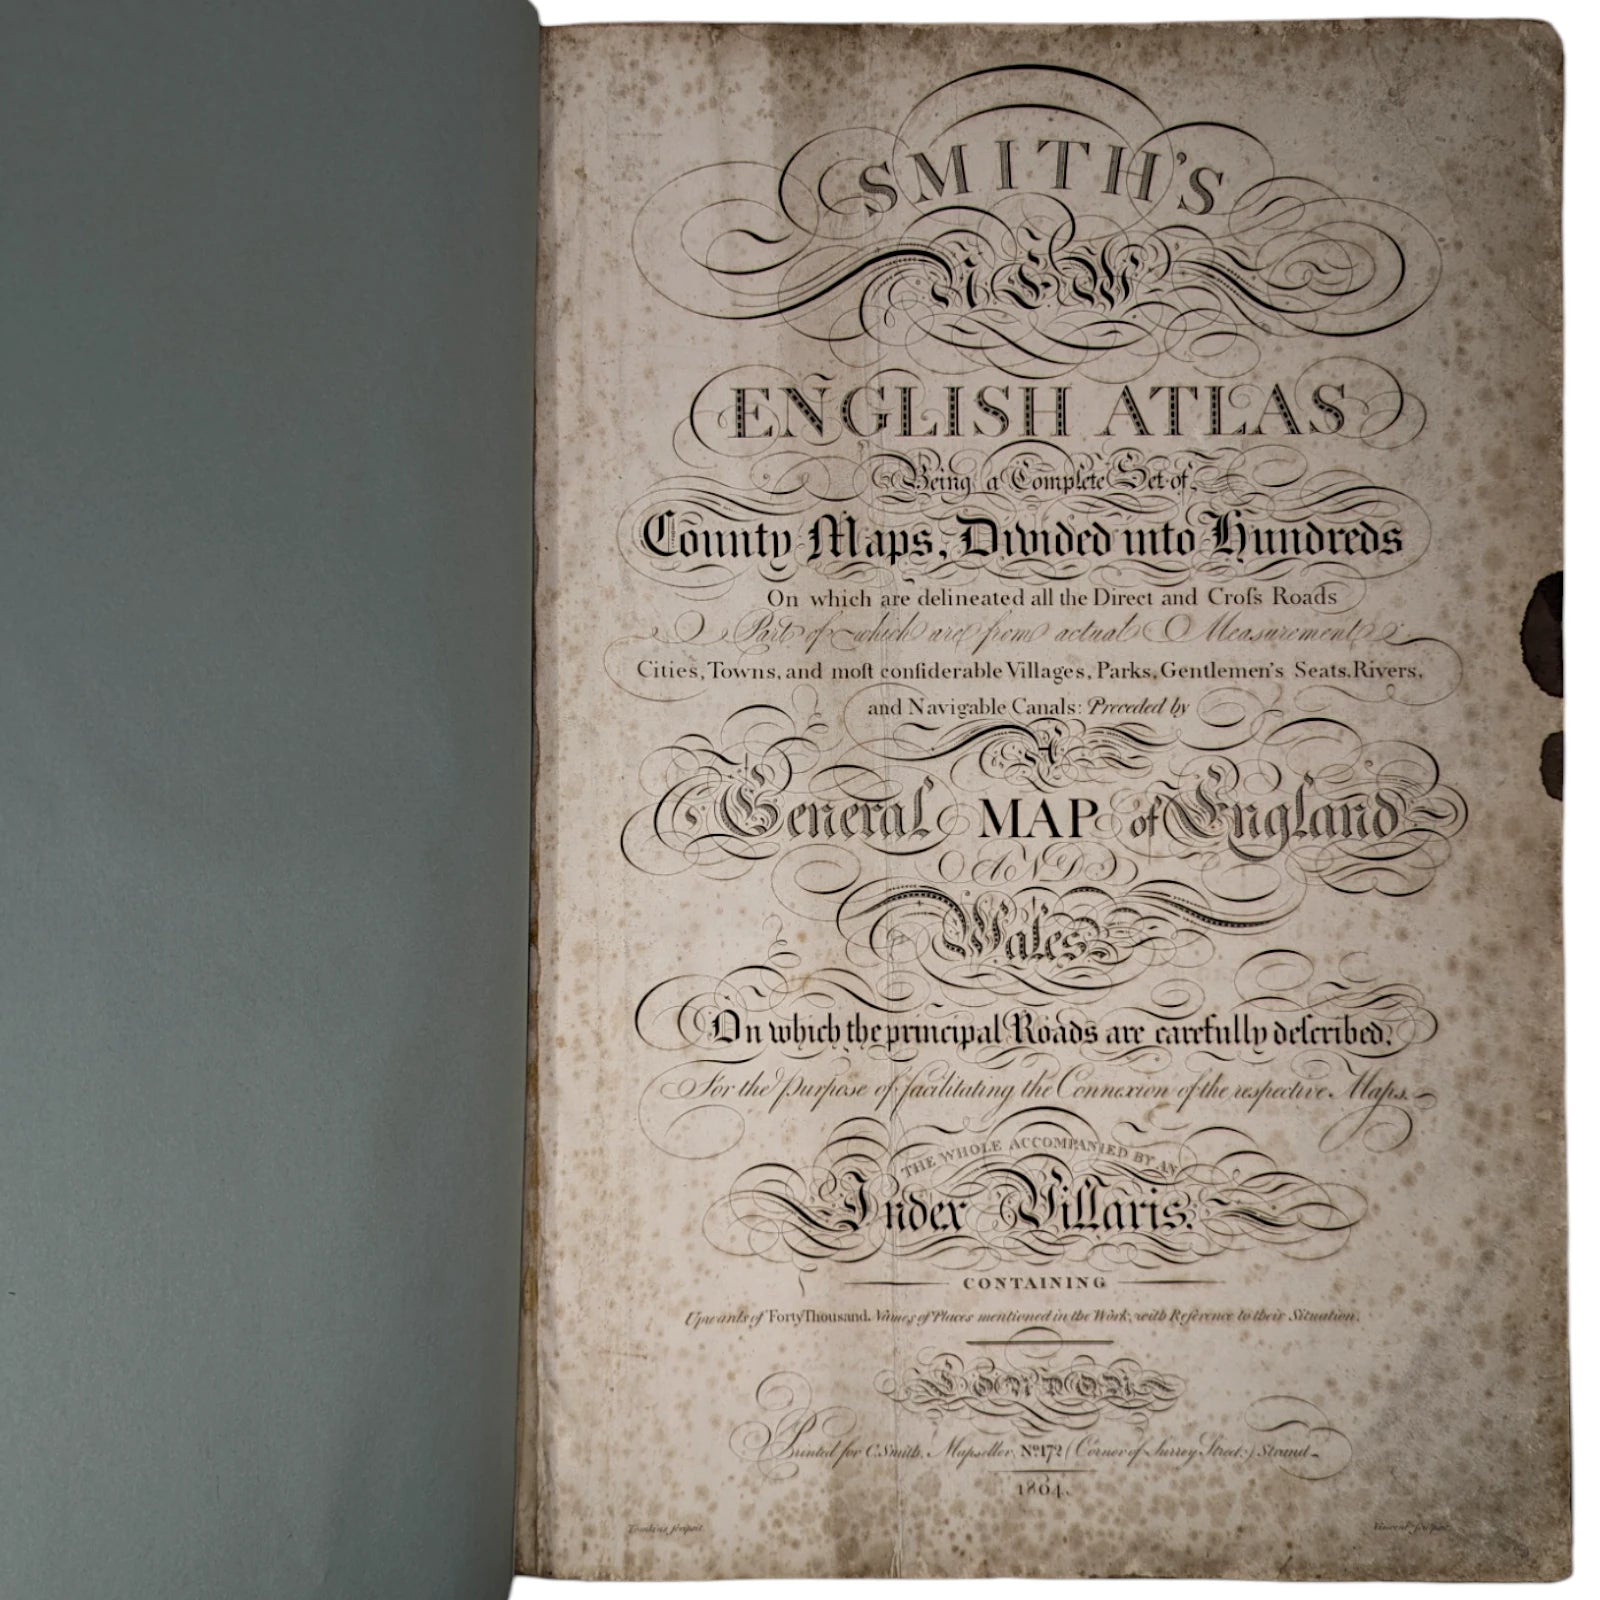 SMITH'S
NEW
ENGLISH ATLAS
Being a Complete Set of
County Maps, Divided into Hundreds
On which are delineated all the Direct and Croſs Roads
Part of which are from actual Measurement
Cities, Towns, and moſt conſiderable Villages, Parks, Gentlemen's Seats, Rivers,
and Navigable Canals: Preceded by
A
General MAP of England
AND
Wales
On which the principal Roads are carefully deſcribed,
For the Purpose of facilitating the Connexion of the respective Maps.
THE WHOLE ACCOMPANIED BY AN
Index Villaris.
CONTAINING
Upwards of Forty Thousand Names of Places mentioned in the Work, with Reference to their Situation.
LONDON
Printed for C. Smith, Mapseller, No. 172 (Corner of Surrey Street,) Strand
1804.
Tomkins ſculpsit
Vincent ſculpsit